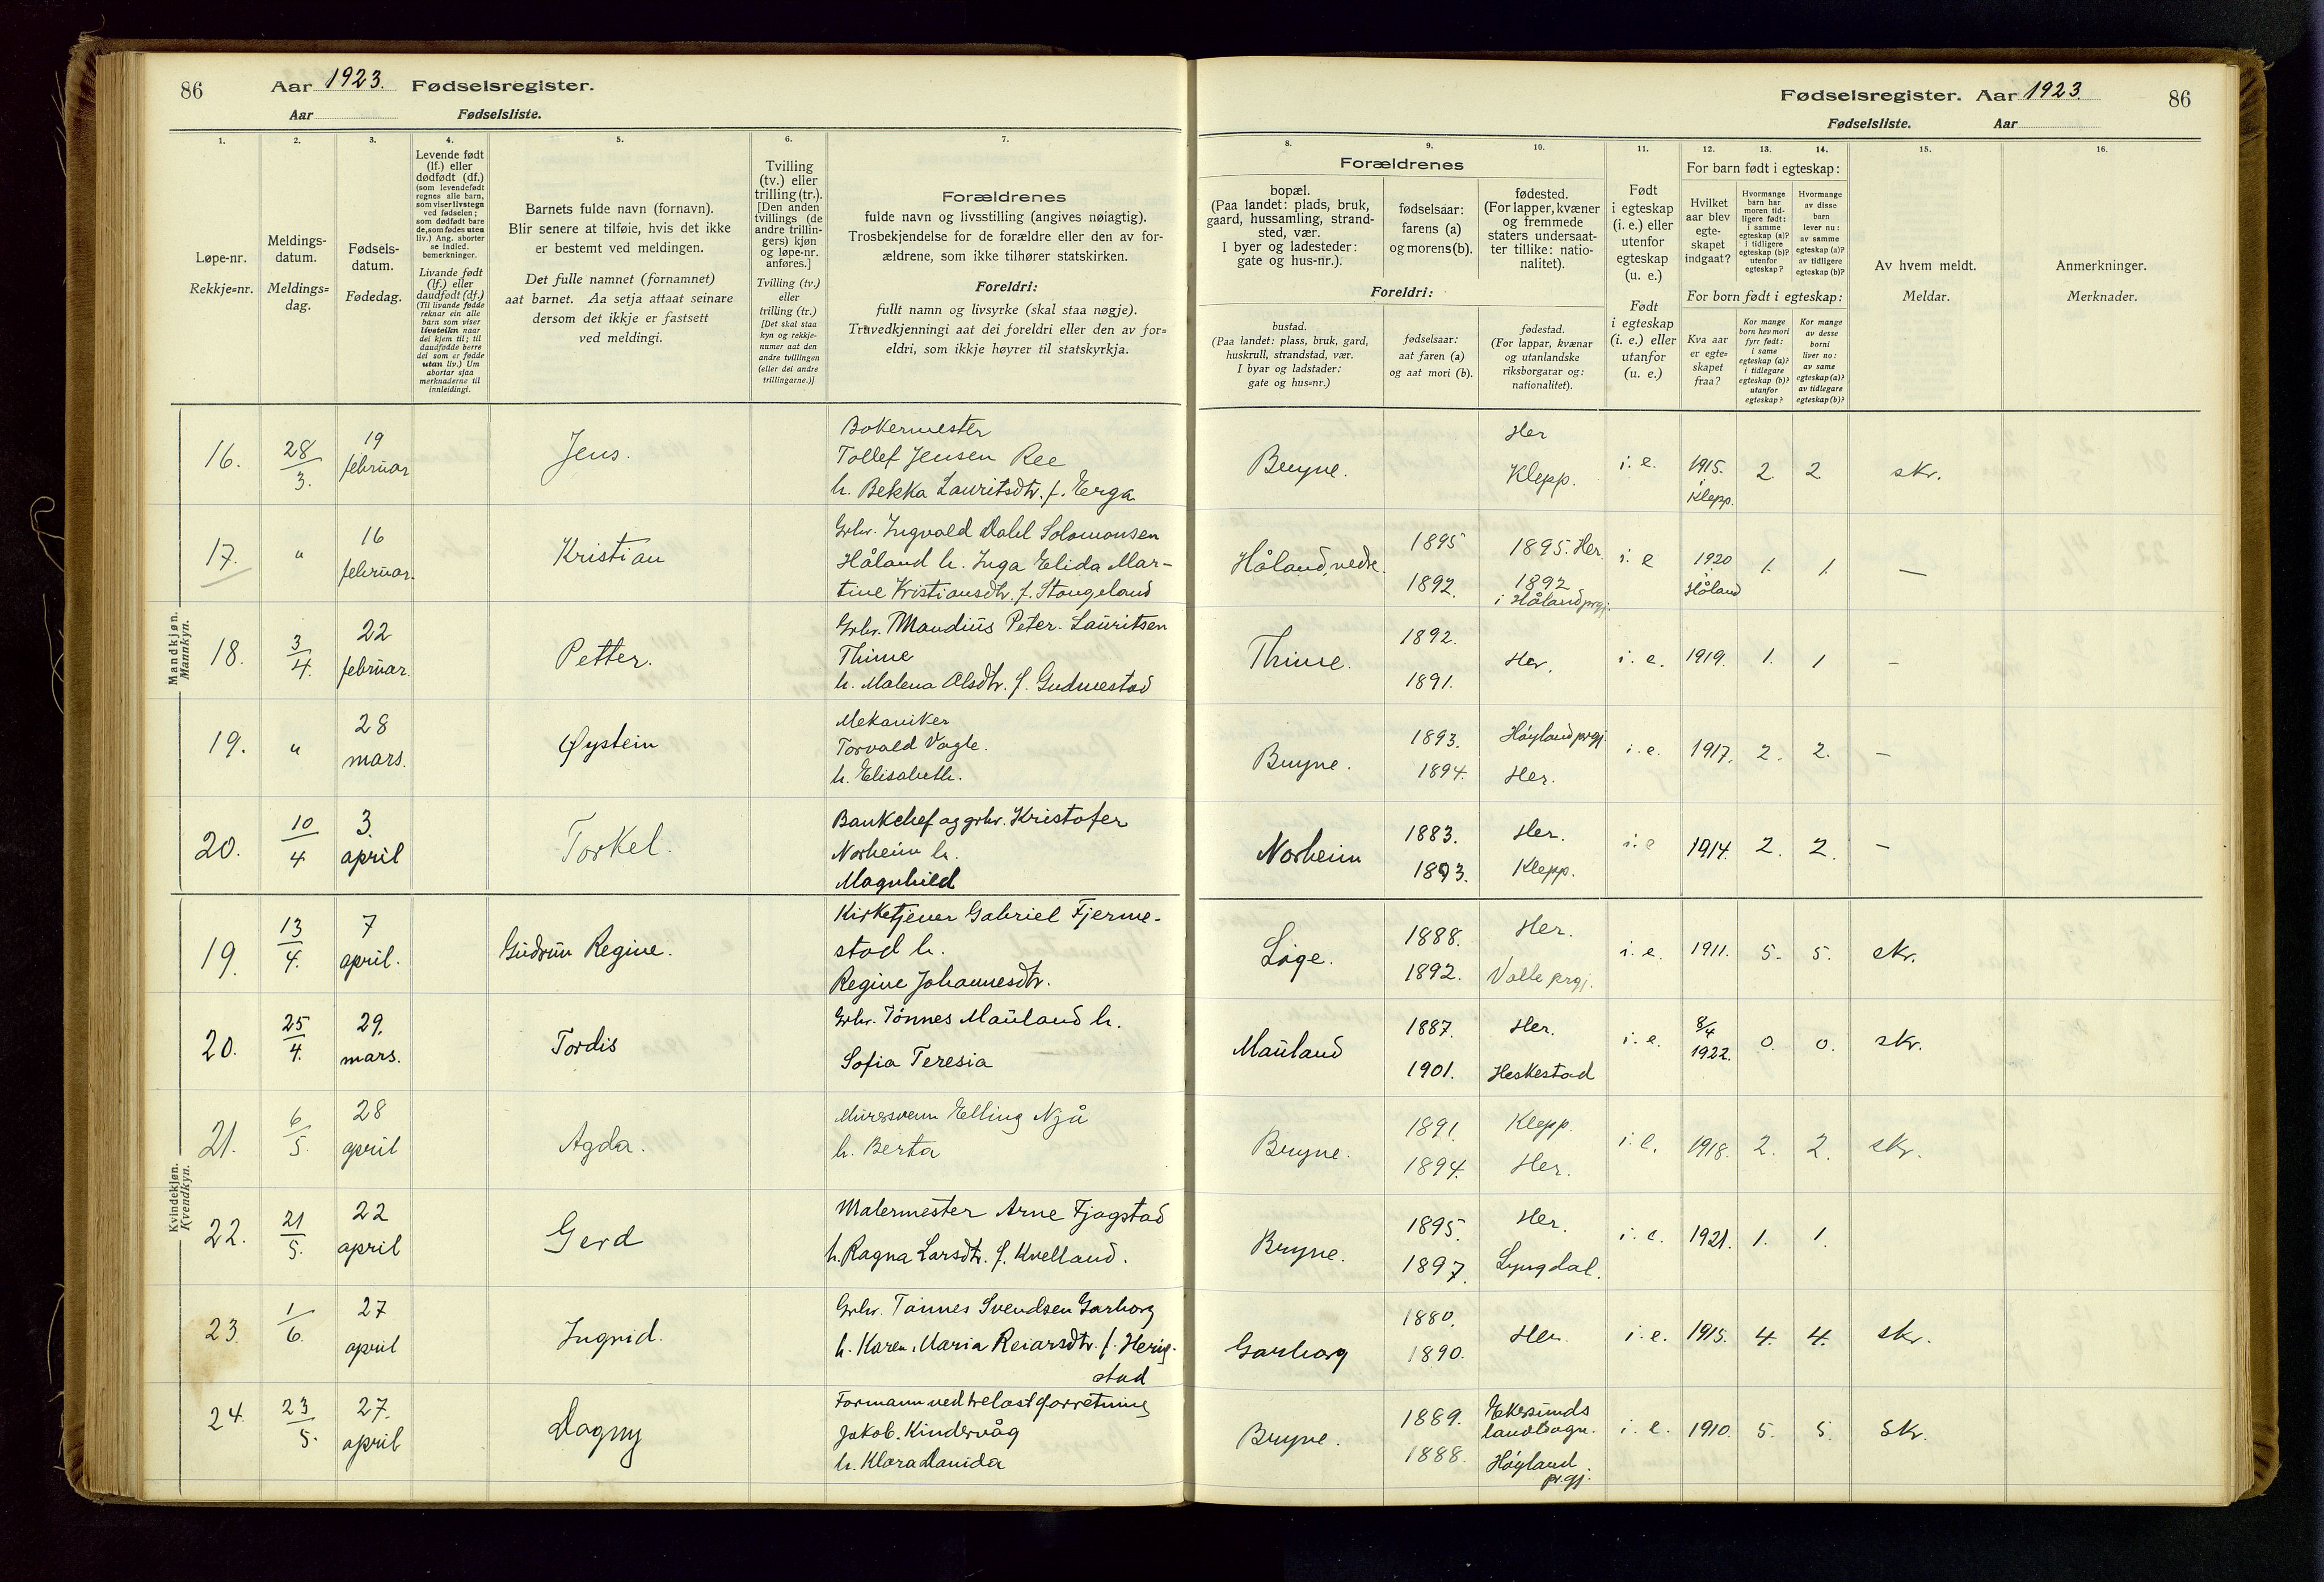 86 Aar 1923. Fødselsregister.
Aar Fødselsliste.
Fødselsregister. Aar 1923. 86
Fødselsliste. Aar
1. 2. 3. 4. 5. 6. 7.
Løpe-nr.
Rekkje=nr.
Meldings-
datum.
Meldings=
dag.
Fødsels-
datum.
Fødedag.
Levende født
(lf.) eller
dødfødt (df.)
(som levendefødt
regnes alle barn,
som viser livstegn
ved fødselen;
som dødfødt bare
de, som fødes uten
liv.) Ang. aborter
se indled.
bemerkninger.
Livande født
(lf.) eller
daudfødt (df.)
(Til livande fødde
reknar ein alle
barn som viser
livsteikn naar
dei kjem til; til
daudfødde berre
dei som er fødde
utan liv.) Um
abortar sjaa
merknaderne til
innleidingi.
Barnets fulde navn (fornavn).
Blir senere at tilføie, hvis det ikke
er bestemt ved meldingen.
Det fulle namnet (fornamnet)
aat barnet. Aa setja attaat seinare
dersom det ikkje er fastsett
ved meldingi.
Tvilling
(tv.) eller
trilling (tr.).
[Den anden
tvillings (de
andre trillin-
gers) kjøn
og løpe-nr.
anføres.]
Tvilling (tv.)
eller
trilling (tr.)
[Det skal staa
kyn og rekkje-
numer aat den
andre tvillingen
(eller dei andre
trillingarne.)]
Forældrenes
fulde navn og livsstilling (angives nøiagtig).
Trosbekjendelse for de forældre eller den av for-
ældrene, som ikke tilhører statskirken.
Foreldri:
fullt namn og livsyrke (skal staa nøgje).
Truvedkjenningi aat dei foreldri eller den av for=
eldri, som ikkje høyrer til statskyrkja.
8. 9. 10. 11. 12. 13. 14. 15. 16.
Forældrenes
bopæl.
(Paa landet: plads, bruk,
gaard, hussamling, strand-
sted, vær.
I byer og ladesteder:
gate og hus-nr.).
fødselsaar:
farens (a)
og morens (b).
fødested.
(For lapper, kvæner
og fremmede
staters undersaat-
ter tillike: natio-
nalitet).
Foreldri:
bustad.
(Paa landet: plass, bruk, gard,
huskrull, strandstad, vær.
I byar og ladstader:
gate og hus=nr.)
fødselsaar:
aat faren (a)
og aat mori (b).
fødestad.
(For lappar, kvænar
og utanlandske
riksborgarar og:
nationalitet).
Født
i egteskap
(i. e.) eller
utenfor
egteskap
(u. e.)
Født
i egteskap
(i. e.) eller
utanfor
(u. e.)
For barn født i egteskap:
Hvilket
aar blev
egte-
skapet
indgaat?
Hvormange
barn har
moren tid-
ligere født:
i samme
egteskap (a)?
i tidligere
egteskap (b)?
utenfor
egteskap?
Hvormange
av disse
barn
lever nu:
av samme
egteskap (a)?
av tidligere
egteskap (b)?
For born født i egteskap:
Kva aar
er egte=
skapet
fraa?
Kor mange
born hev mori
fyrr født:
i same
egteskap (a)?
i tidlegare
egteskap (b)?
utanfor
egteskap?
Kor mange
av desse
borni
liver no:
av same
egteskap (a)?
av tidlegare
egteskap (b)?
Av hvem meldt.
Meldar.
Anmerkninger.
Merknader.
Mandkjøn.
Mannkyn.
16. 28/3. 19 februar Jens. Bakermester
Tollef Jensen Ree
h. Bekka Lauritsdtr. f. Erga
Bryne. Her Klepp. i. e. 1915. i Klepp. 2 2 skr.
17. " 16 februar. Kristian Grbr. Ingvald Dahl Solomonsen
Håland h. Inga Elida Mar-
tine Kristiansdtr. f. Stangeland
Håland, nedre. 1895 1892. 1895. Her. 1892 i Håland prgj. i. e 1920 i Håland 1. 1. —
18. 3/4. 22 februar. Petter. Grbr. Mandius Peter Lauritsen
Thime
h. Malena Olsdtr. f. Gudmestad
Thime. 1892. 1891. Her. i. e. 1919. 1. 1 -
19. " 28 mars. Øystein Mekaniker
Torvald Vagle.
h. Elisabeth.
Bryne. 1893. 1894. Høyland prgj. Her. i. e. 1917. 2. 2. -
20. 10/4 3. april Torkel. Bankchef og grbr. Kristofer
Norheim h.
Magnhild
Norheim 1883. 1893. Her. Klepp. i. e 1914. 2. 2. -
Kvindekjøn.
Kvendkyn.
19. 13/4. 7 april. Gudrun Regine. Kirketjener Gabriel Fjerme-
stad h.
Regine Johannesdtr.
Låge. 1888. 1892. Her. Valle prgj. i. e. 1911. 5. 5. skr.
20. 25/4. 29. mars. Tordis Grbr. Tønnes Mauland h.
Sofia Teresia
Mauland 1887. 1901. Her. Heskestad i. e. 8/4 1922. 0. 0. skr.
21. 6/5. 28 april Agda. Murersvenn Elling Njå
h. Berta
Bryne. 1891. 1894. Klepp. Her. i. e. 1918. 2. 2. skr.
22. 21/5. 22 april Gerd Malermester Arne Fjogstad
h. Ragna Larsdtr. f. Kvelland.
Bryne. 1895. 1897. Her. Lyngdal. i. e. 1921. 1. 1.
23. 1/6. 27 april Ingrid. Grbr. Tønnes Svendsen Garborg
h. Karen Maria Reiarsdtr. f. Herig-
stad
Garborg 1880. 1890. Her. i. e. 1915. 4. 4. skr.
24. 23/5. 27. april Dagny Formann ved trelastforretning
Jakob Kindervåg
h. Klara Danida
Bryne. 1889. 1888. Ekersunds landsogn. Høyland prgj. i. e. 1910. 5. 5. Skr.